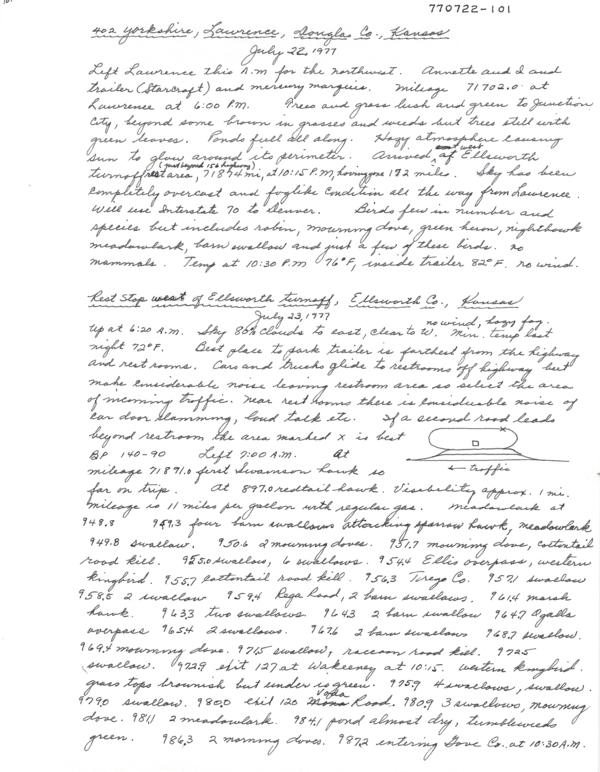 770722-101
402 Yorkshire, Lawrence, Douglas Co., Kansas
July 22, 1977
Left Lawrence this A.M for the northwest. Annette and I and
trailer (Starcraft) and mercury marquis. Mileage 71702.0 at
Lawrence at 6:00 P.M. Trees and grass lush and green to Junction
City, beyond some brown in grasses and weeds but trees still with
green leaves. Ponds full all along. Hazy atmosphere causing
sun to glow around its perimeter. Arrived, at west of Ellsworth
turnoff (just beyond 156 highway) rest area, 71874 mi, at 10:15 P.M, having gone 172 miles. Sky has been
completely overcast and foglike condition all the way from Lawrence.
Will use Interstate 70 to Denver. Birds few in number and
species but includes robin, mourning dove, green heron, nighthawk
meadowlark, barn swallow and just a few of these birds. no
mammals. Temp at 10:30 P.M 76°F, inside trailer 82°F. no wind.
Rest Stop west of Ellsworth turnoff, Ellsworth Co., Kansas
July 23, 1977
Up at 6:20 A.M. Sky 80% clouds to east, clear to W. no wind, hazy fog. Min. temp last
night 72°F. Best place to park trailer is farthest from the highway
and rest rooms. Cars and trucks glide to restrooms off highway but
make considerable noise leaving restroom area so select the area
of incoming traffic. Near rest rooms there is considerable noise of
car door slamming, loud talk etc. If a second road leads
beyond restroom the area marked x is best
x
BP 140-90 Left 7:00 A.M. At
← traffic
mileage 71891.0 first Swainson hawk so
far on trip. At 897.0 redtail hawk. Visibility approx. 1 mi.
mileage is 11 miles per gallon with regular gas. Meadowlark at
948.8 949.3 four barn swallows attacking sparrow hawk, meadowlark
949.8 swallow. 950.6 2 mourning doves. 951.7 mourning dove, cottontail
road kill. 955.0 swallow, 6 swallows. 954.4 Ellis overpass, western
kingbird. 955.7 cottontail road kill. 956.3 Trego Co. 957.1 swallow
958.5 2 swallow 959.4 Riga Road, 2 barn swallows. 961.4 marsh
hawk. 963.3 two swallows 964.3 2 barn swallow 964.7 Ogalla
overpass 965.4 2 swallows. 967.6 2 barn swallows 968.7 swallow.
969.4 mourning dove. 971.5 swallow, raccoon road kill. 972.5
swallow. 972.9 exit 127 at Wakeeney at 10:15. western kingbird.
grass tops brownish but under is green. 975.9 4 swallows, swallow.
979.0 swallow. 980.0 exit 120 Voda Road. 980.9 3 swallows, mourning
dove. 981.1 2 meadowlark. 984.1 pond almost dry, tumbleweeds
green. 986.3 2 morning doves. 987.2 entering Gove Co. at 10:30 A.M.